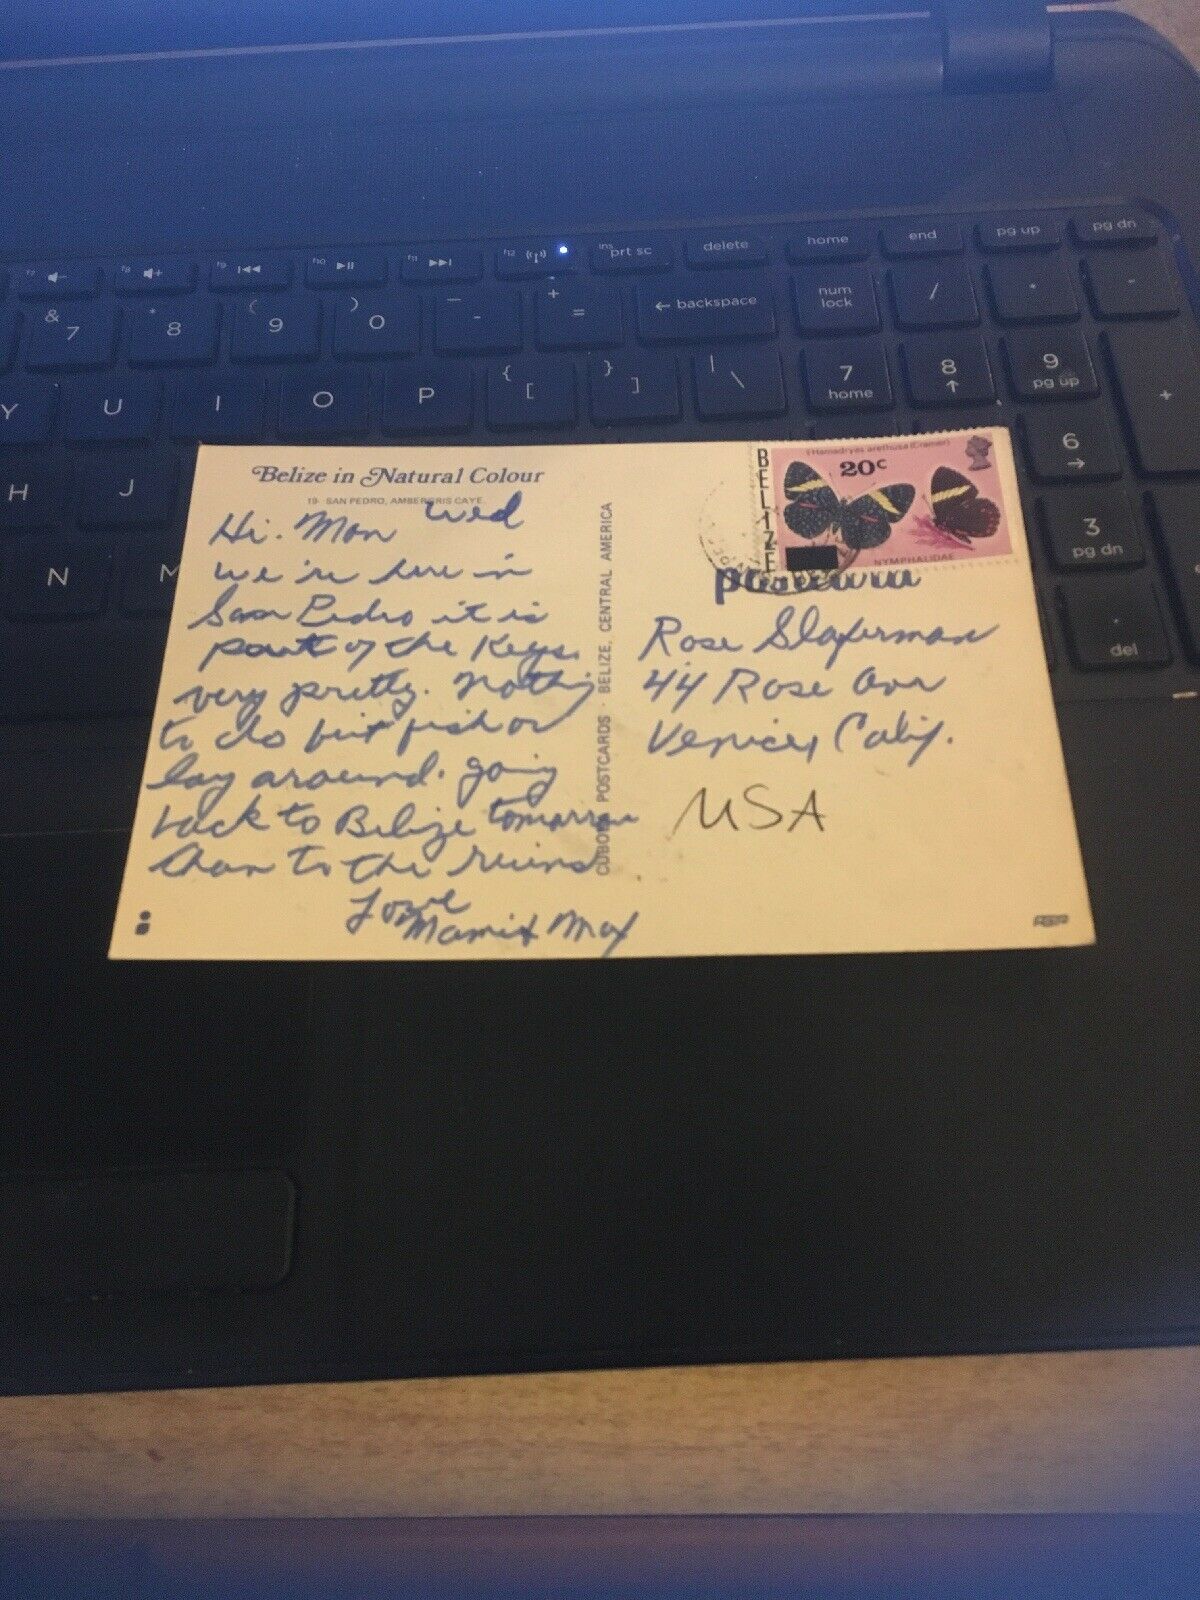 f7
f8
f9
f10
f11
f12
ins
prt sc
delete
home
end
pg up
pg dn
& 7
* 8
( 9
) 0
_ -
+ =
← backspace
num lock
/
*
-
Y
U
I
O
P
{ [
} ]
| \
7 home
8 ↑
9 pg up
+
H
J
6 →
N
M
3 pg dn
. del
Belize in Natural Colour
19- SAN PEDRO, AMBERGRIS CAYE.
Wed
Hi. Mom
we're here in
San Pedro it is
part of the Keys.
very pretty. nothing
to do but fish or
lay around. going
back to Belize tomorrow
than to the ruins
Love
Mom & Max
POSTCARDS - BELIZE, CENTRAL AMERICA
BELIZE
Hamadryas arethusa (Cramer)
20c
NYMPHALIDAE
postcard
Rose
44 Rose Ave
Venice, Calif.
USA